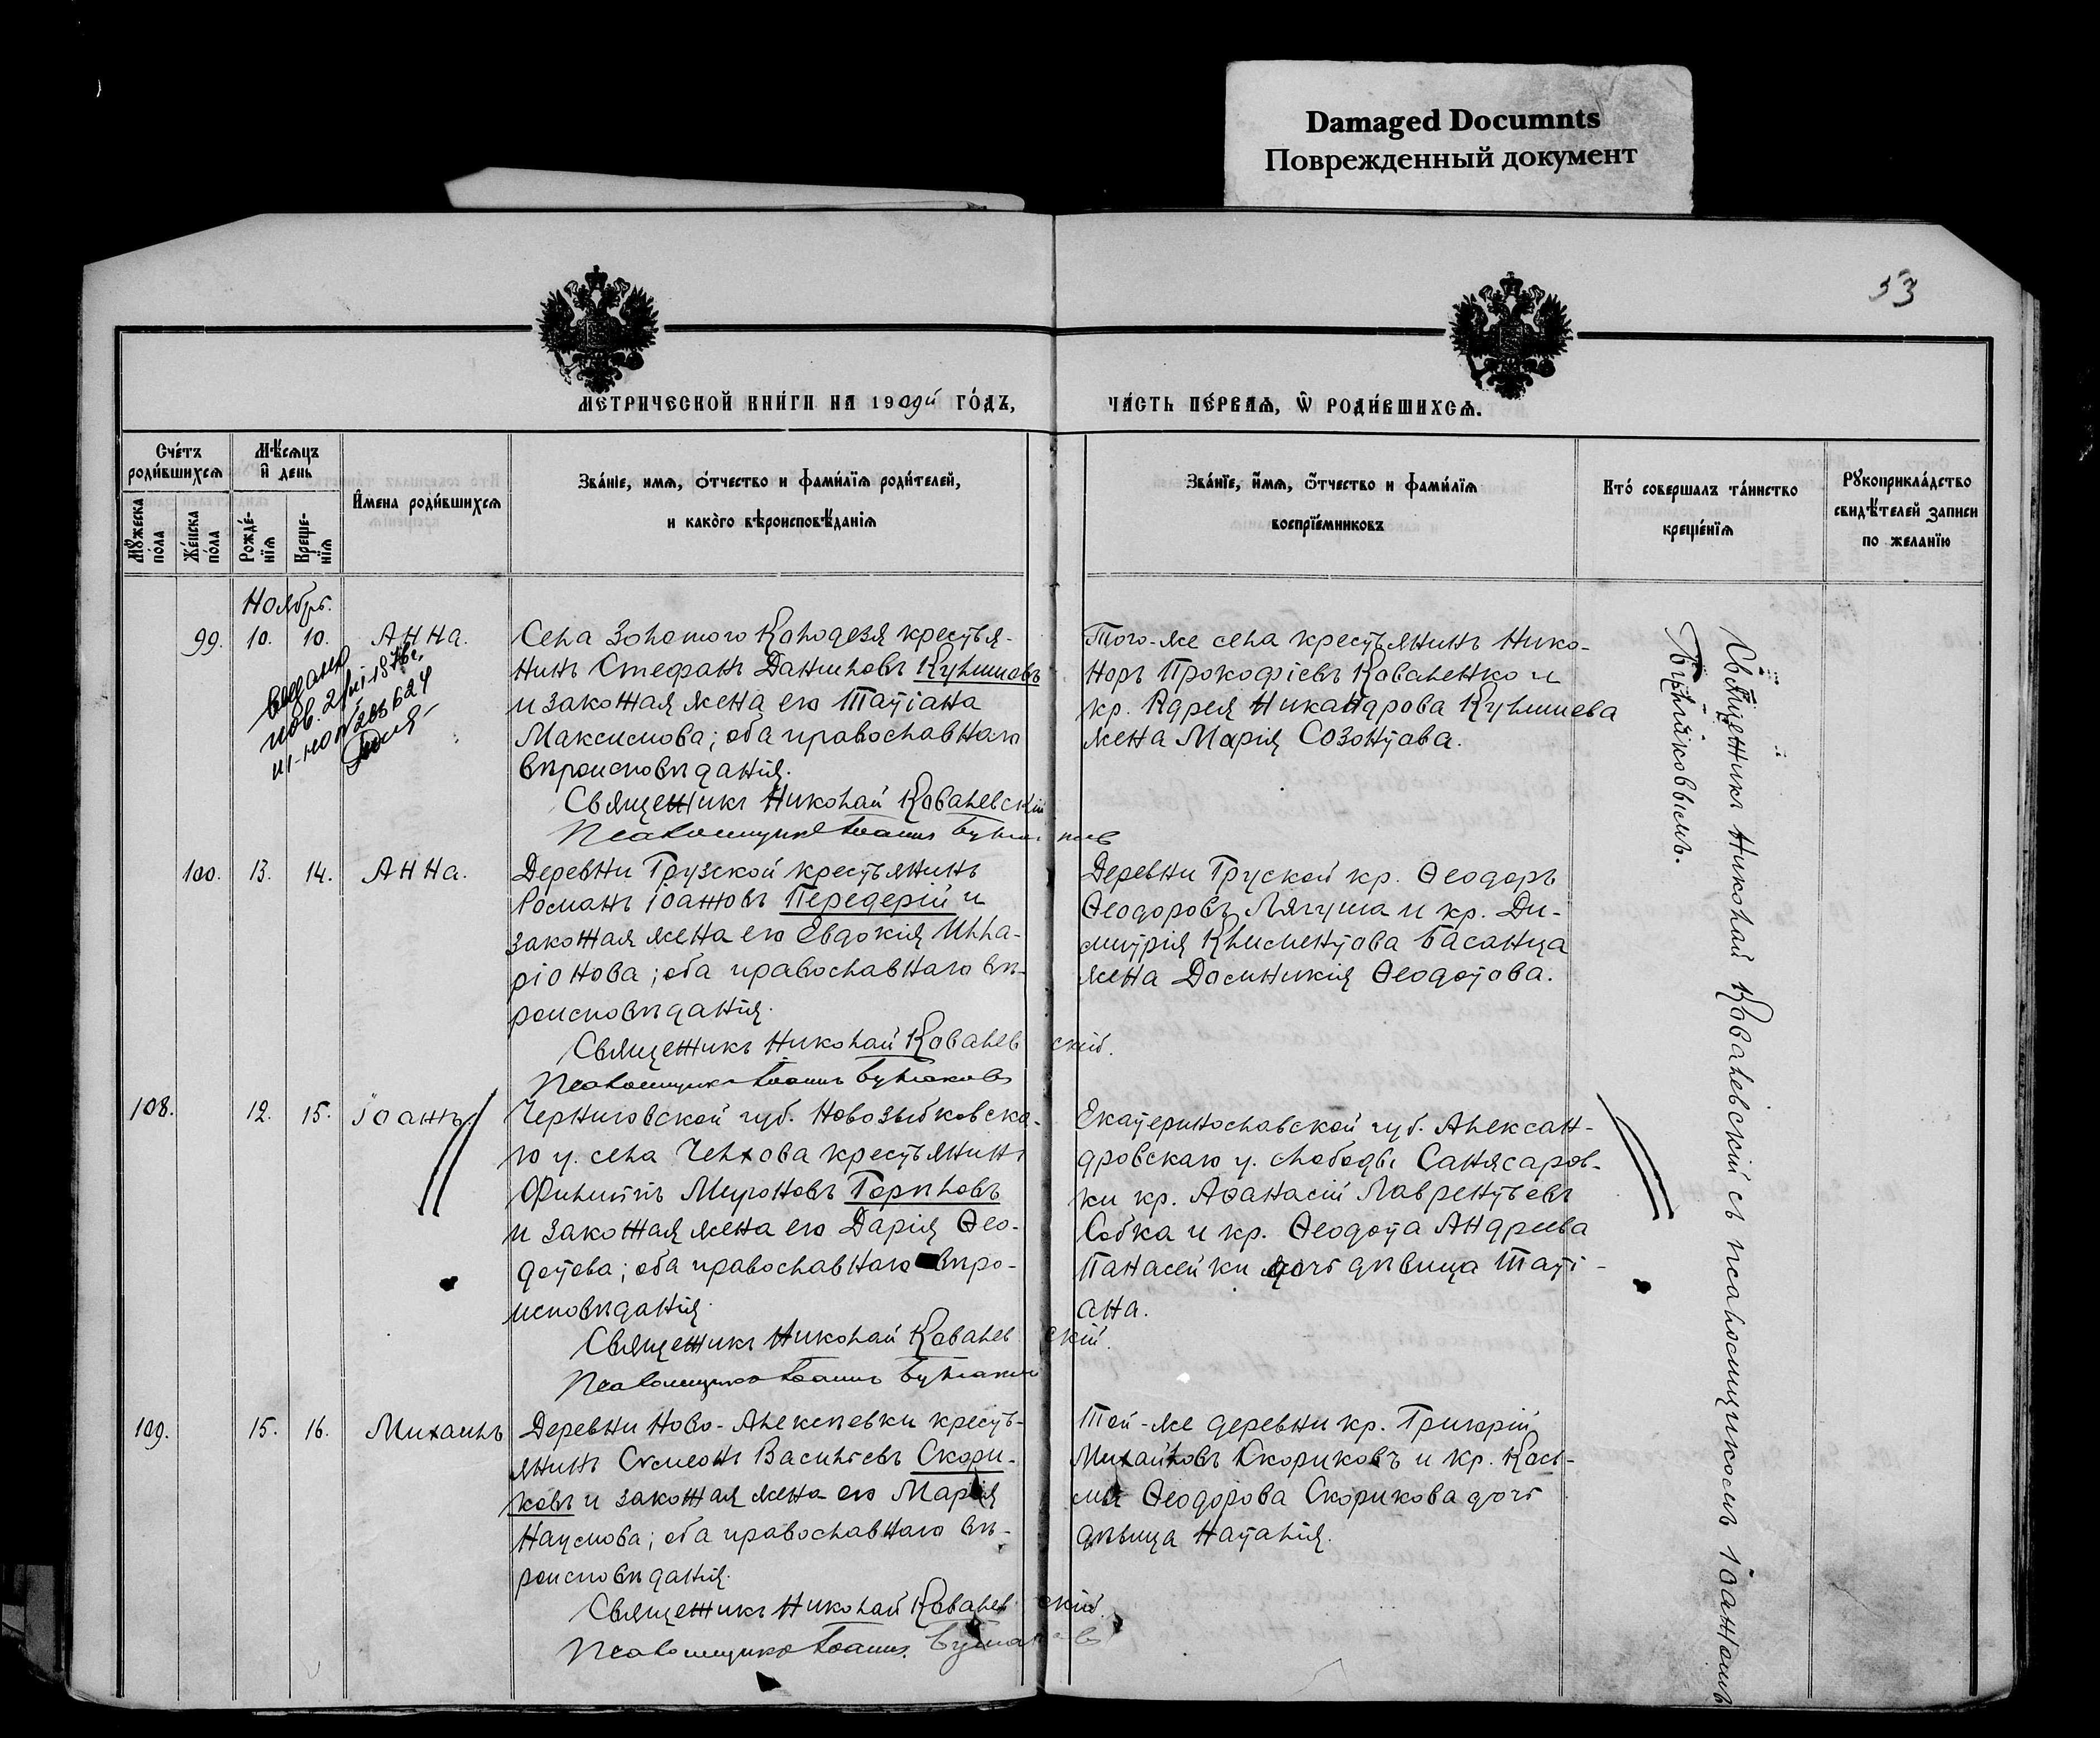 Damaged Documnts
Поврежденный документ
53
МЕТРИЧЕСКОЙ КНИ́ГИ НА 19 ГО́ДЪ,
ЧА́СТЬ ПЕ́РВАѦ, Ѿ РОДИ́ВШИХСѦ.
Сче́тъ роди́вшихсѧ
Мѣ́сѧцъ и҆ день
И҆мена роди́вшихсѧ
Зва́нїе, имѧ, о́тчество и фами́лїѧ роди́телей,
и како́го вѣроисповѣ́данїѧ
Зва́нїе, и҆́мѧ, о҆́тчество и фами́лїѧ
воспрїе́мниковъ
Кто́ совершалъ та́инство
креще́нїѧ
Рꙋкоприкла́дство
свидѣ́телей записи
по желанїю
Мꙋжеска по́ла
Же́нска по́ла
Рожде́нїѧ
Креще́нїѧ
Ноябрь.
99. 10. 10. Анна.
Села Золотого Колодезя крестья-
нинъ Стефанъ Даниловъ Кулишовъ
и законная жена его Татіана
Максимова; оба православнаго
вѣроисповѣданія.
Священникъ Николай Ковалевскій
Псаломщикъ Іоаннъ
Того-же села крестьянинъ Нико-
норъ Прокофіевъ Коваленко и
кр. Андрея Никандрова Кулишева
жена Марія Созонтова.
100. 13. 14. Анна.
Деревни Грузской крестьянинъ
Романъ Іоанновъ Передерій и
законная жена его Евдокія Илла-
ріонова; оба православнаго вѣ-
роисповѣданія.
Священникъ Николай Ковалевскій.
Псаломщикъ Іоаннъ
Деревни Груской кр. Ѳеодоръ
Ѳеодоровъ Лягуша и кр. Ди-
митрія Климентова Басанца
жена Домникія Ѳеодотова.
108. 12. 15. Іоаннъ.
Черниговской губ. Новозыбковска-
го у. села Челхова крестьянинъ
Филиппъ Мироновъ Горѣловъ
и законная жена его Дарія Ѳео-
дотова; оба православнаго вѣро-
исповѣданія.
Священникъ Николай Ковалевскій.
Псаломщикъ Іоаннъ
Екатеринославской губ. Алексан-
дровскаго у. слободы Санжаров-
ки кр. Аѳанасій Лаврентьевъ
Собка и кр. Ѳеодота Андреева
Панасейки дочь дѣвица Таті-
ана.
109. 15. 16. Михаилъ
Деревни Ново-Алексѣевки кресть-
янинъ Симеонъ Васильевъ Скори-
ковъ и законная жена его Марія
Наумова; оба православнаго вѣ-
роисповѣданія.
Священникъ Николай Ковалевскій.
Псаломщикъ Іоаннъ
Той-же деревни кр. Григорій
Михайловъ Скориковъ и кр. Кось-
мы Ѳеодорова Скорикова дочь
дѣвица Наталія.
Священникъ Николай Ковалевскій съ псаломщикомъ Іоанномъ